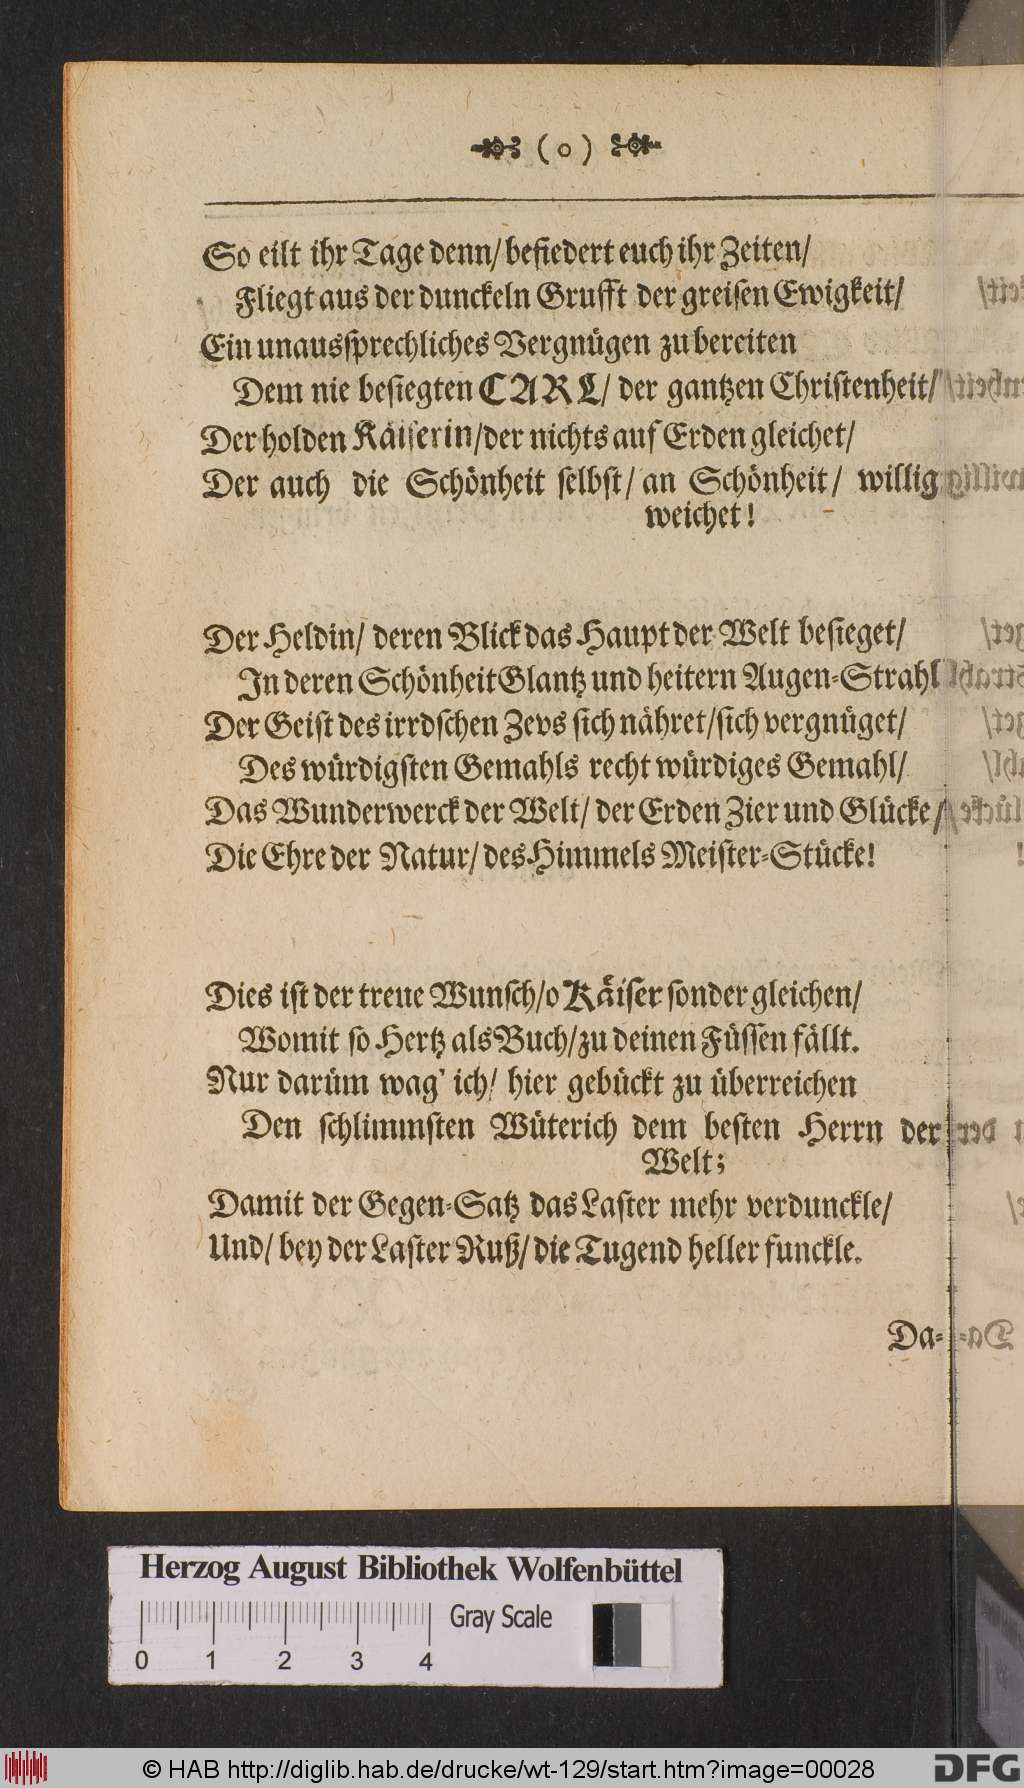 ( o )
So eilt ihr Tage denn/ befiedert euch ihr Zeiten/
Fliegt aus der dunckeln Grufft der greisen Ewigkeit/
Ein unaussprechliches Vergnügen zu bereiten
Dem nie besiegten CARL/ der gantzen Christenheit/
Der holden Käiserin/ der nichts auf Erden gleichet/
Der auch die Schönheit selbst/ an Schönheit/ willig
weichet!
Der Heldin/ deren Blick das Haupt der Welt besieget/
In deren Schönheit Glantz und heitern Augen-Strahl
Der Geist des irrdschen Zevs sich nähret/ sich vergnüget/
Des würdigsten Gemahls recht würdiges Gemahl/
Das Wunderwerck der Welt/ der Erden Zier und Glücke/
Die Ehre der Natur/ des Himmels Meister-Stücke!
Dies ist der treue Wunsch/ o Käiser sonder gleichen/
Womit so Hertz als Buch/ zu deinen Füssen fällt.
Nur darüm wag' ich/ hier gebückt zu überreichen
Den schlimmsten Wüterich dem besten Herrn der
Welt;
Damit der Gegen-Satz das Laster mehr verdunckle/
Und/ bey der Laster Ruß/ die Tugend heller funckle.
Da-
Herzog August Bibliothek Wolfenbüttel
Gray Scale
0 1 2 3 4
© HAB http://diglib.hab.de/drucke/wt-129/start.htm?image=00028
DFG